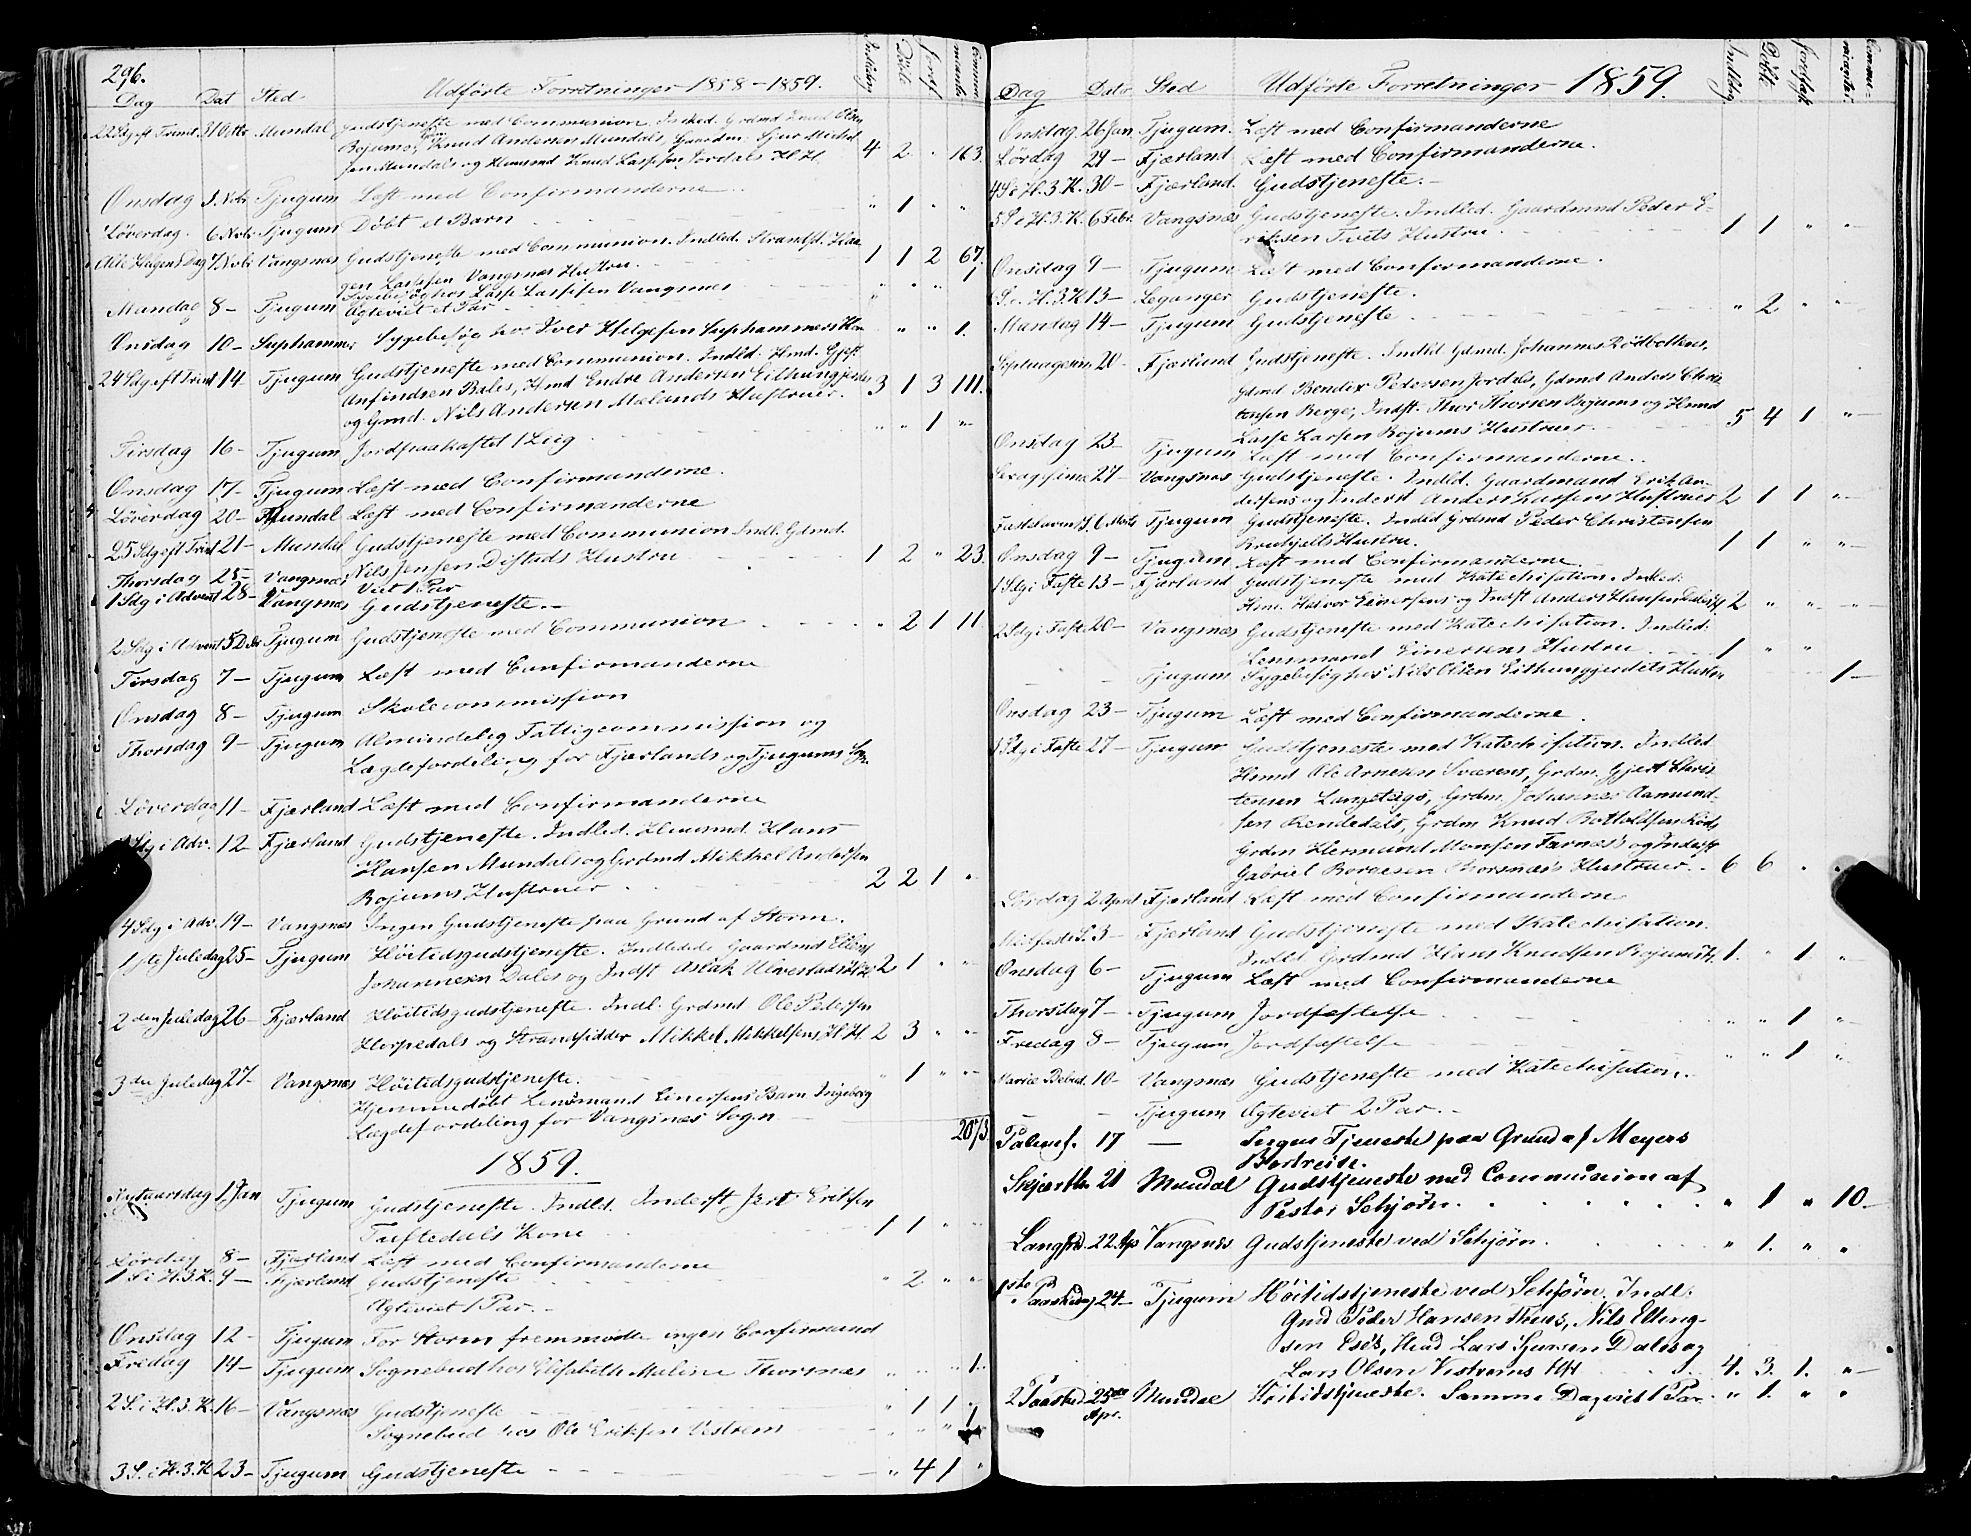 296.
Dag Dat Sted Udförte Forretninger 1858-1859. Indledn Döbt Jordf Commu nicanter
22 Sdg eft Trinit 31 Octbr Mundal Gudstjeneste med Communion. Indled. Grdmd Knud Olsen
Bojums, Knud Andersen Mundals, Gaardm. Sjur Mikkel
sen Mundals og Huusmd Knud Lassesen Jordals H.H. 4 2 " 163.
Onsdag 3 Nvbr Tjugum Læst med Confirmanderne
Löverdag 6 Nvbr Tjugum Döbt et Barn " 1 " "
Alle Helgens Dag 7 Nvbr Vangsnæs Gudstjeneste med Communion. Indled. Strandsd. Haa-
gen Lassesen Vangsnæs Hustru 1 1 2 67.
Sygebesög hos Lasse Lassesen Vangsnæs " " " 1
Mandag 8 - Tjugum Ægteviet et Par
Onsdag 10 - Suphammer Sygebesög hos Iver Helgesen Suphammers Kone " " 1.
24 Sdg eft Trinit 14 - Tjugum Gudstjeneste med Communion. Indld. Hmd.
Anfindsen Bales, Hmd Endre Andersen Eithungjerdes
og Gmd. Nils Andersen Mælands Hustruer. 3 1 3 111.
Tirsdag 16 - Tjugum Jordpaakastet 1 Liig " " 1 "
Onsdag 17 - Tjugum Læst med Confirmanderne.
Löverdag 20 - Mundal Læst med Confirmanderne
25 Sdg eft Trinit 21 - Mundal Gudstjeneste med Communion Indl. Gdmd.
Nils Jensen Distads Hustru 1 2 " 23.
Thorsdag 25 - Vangsnæs Viet 1 Par
1 Sdg i Advent 28 - Vangsnæs Gudstjeneste.
2 Sdg i Advent 5 Dcbr Tjugum Gudstjeneste med Communion " 2 1 11
Tirsdag 7 - Tjugum Læst med Confirmanderne
Onsdag 8 - Tjugum Skolecommission
Thorsdag 9 - Tjugum Almindelig Fattigcommission og
Lægdefordeling for Fjærlands og Tjugums Sogn
Löverdag 11 - Fjærland Læst med Confirmanderne
Sdg i Adv. 12 - Fjærland Gudstjeneste. Indled. Huusmd. Hans
Hansen Mundals og Grdmd Mikkel Andersen
Bojums Hustruer 2 2 1 "
4 Sdg i Adv. 19 - Vangsnæs Ingen Gudstjeneste paa Grund af Storm.
1ste Juledag 25 - Tjugum Höitidsgudstjeneste. Indledede Gaardmd Ellens
Johannesen Dales og Indst Aslak Ulvestads H.H. 2 1 " "
2den Juledag 26 - Fjærland Höitidsgudstjeneste. Indl. Grdmd Ole Petersen
Horpedals og Strandsidder Mikkel Mikkelsens H.H. 2 3 " "
3die Juledag 27 - Vangsnæs Höitidsgudstjeneste. " 1 " "
Hjemmedöbt Lensmand Einersens Barn Ingeborg
Lægdefordeling for Vangsnæs Sogn
2073
1859.
Nytaarsdag 1 Jan Tjugum Gudstjeneste. Indld. Inderst Jert Eriksen
Tuftedals Kone 1 1 " "
Lördag 8 - Fjærland Læst med Confirmanderne
1 S. i H.3.K. 9 - Fjærland Gudstjeneste " 2 " "
Ægteviet 1 Par.
Onsdag 12 - Tjugum For Storm fremmödte ingen Confirmand
Fredag 14 - Tjugum Sognebud hos Elisabeth Malene Thorsnæs " " " 1.
2 S. i H.3.K. 16 - Vangsnæs Gudstjeneste " 1 1 "
Sognebud hos Ole Eriksen Vestrem " " " 1
3 S. i H.3.K 23 - Tjugum Gudstjeneste " 4 1 "
Dag Dato Sted Udförte Forretninger 1859. Indledn Döbte Jordfæst Commu- nicanter
Onsdag 26 Jan. Tjugum. Læst med Confirmanderne
Lördag 29 - Fjærland Læst med Confirmanderne.
4 S. e. H.3.K. 30 - Fjærland. Gudstjeneste.
5 S. e. H.3.K. 6 Febr. Vangsnæs Gudstjeneste. Indled. Gaardmnd Peder E-
riksen Tuets Hustru. 1 1 " "
Onsdag 9 - Tjugum Læst med Confirmanderne.
S. e. H.3.K 13 - Leganger Gudstjeneste.
Mandag 14 - Tjugum Gudstjeneste " 2 " "
Septuagesim. 20 - Fjærland Gudstjeneste. Indld Gdmd. Johannes Rödbottens,
Gdmd Bendix Pedersen Jordals, Gdmd Anders Chris
tensen Berge, Indst. Thor Thorsen Bojums og Hmd
Lasse Larsen Bojums Hustruer. 5 4 1 "
Onsdag 23 - Tjugum Læst med Confirmanderne.
Sexagesima 27 - Vangsnæs Gudstjeneste. Indld. Gaardmand Erik An-
dersens og Inderst Anders Larsens Hustruer 2 1 1 "
Fastelavns S. 6 Marts Tjugum Gudstjeneste. Indled Grdmd Peder Christensen
Hustru. 1 1 " "
Onsdag 9 - Tjugum Læst med Confirmanderne.
1 Sdg i Faste 13 - Fjærland Gudstjeneste med Katechisation. Indled:
Hm. Halvor Einersens og Indst Anders Hansen Dales H.H. 2 " " "
2 Sdg i Faste 20 - Vangsnæs Gudstjeneste med Katechisation. Indled:
Lensmand Einersens Hustru 1 " "
- - Tjugum Sygebesög hos Nils Olsen Eithungjerdets Hustru 1
Onsdag 23 - Tjugum Læst med Confirmanderne.
3 Sdg i Faste 27 - Tjugum Gudstjeneste med Katechisation. Indled
Hmd Ole Arnesen Sværens, Grdm. Gjert Chris
tensen Langeteigs, Grdm. Johannes Aamund-
sen Kendedals, Grdm Knud Botholfsen
Grdm Hermund Monsen Farnæs's og Inderst
Gabriel Borgesen Thorsnæs's Hustruer. 6 6 " "
Lördag 2 April Fjærland Læst med Confirmanderne
Midfaste S. 3 - Fjærland Gudstjeneste med Katechisation.
Indld. Grdmd Hans Knudsen Bojums H. 1. " 1 "
Onsdag 6 - Tjugum Læst med Confirmanderne
Thorsdag 7 - Tjugum Jordfæstelse " " 1 "
Fredag 8 - Tjugum Jordfæstelse " " 1 "
Mariæ Bebud. 10 - Vangsnæs Gudstjeneste med Katechisation.
- - Tjugum Ægteviet 2 Par.
Palmes. 17 — Ingen Tjeneste paa Grund af Meyers
Bortreise.
Skjærth. 21 Mundal Gudstjeneste med Communion af
Pastor Schjörn. " 1 " 10
Langfrd. 22 Ap Vangsnæs Gudstjeneste ved Schjörn. " 1. " "
1ste Paaskedag 24 - Tjugum Höitidstjeneste ved Schjörn. Indl:
Gmd Peder Hansen Thues, Nils Elling-
sen Eses, Hmd Lars Sjursen Dales og
Lars Olsen Vestrems HH 4. 3. 1. "
2 Paasked. 25de Apr. Mundal Höitidstjeneste. Samme Dag viet 1 Par. " 1. " "